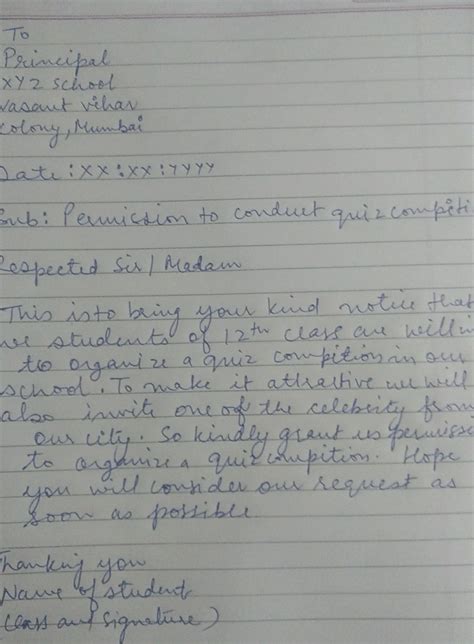 To
Principal
XYZ school
Vasant vihar
Colony, Mumbai
Date : XX : XX : YYYY
Sub: Permission to conduct quiz compiti
Respected Sir / Madam
This is to bring your kind notice that
we students of 12th class are willin
to organize a quiz compition in our
school. To make it attractive we will
also invite one of the celebrity from
our city. So kindly grant us permissi
to organize a quiz compition. Hope
you will consider our request as
soon as possible.
Thanking you
Name of student
(class and signature)